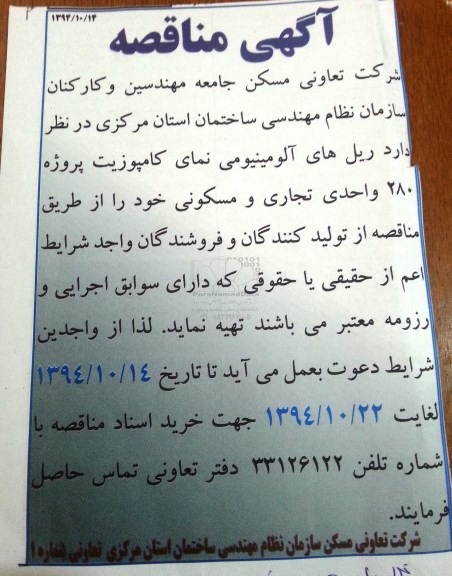 ۱۳۹۴/۱۰/۱۴
آگهی مناقصه
شرکت تعاونی مسکن جامعه مهندسین وکارکنان
سازمان نظام مهندسی ساختمان استان مرکزی در نظر
دارد ریل های آلومینیومی نمای کامپوزیت پروژه
۲۸۰ واحدی تجاری و مسکونی خود را از طریق
مناقصه از تولید کنندگان و فروشندگان واجد شرایط
اعم از حقیقی یا حقوقی که دارای سوابق اجرایی و
رزومه معتبر می باشند تهیه نماید. لذا از واجدین
شرایط دعوت بعمل می آید تا تاریخ ۱۳۹٤/۱۰/۱٤
لغایت ۱۳۹٤/۱۰/۲۲ جهت خرید اسناد مناقصه با
شماره تلفن ۳۳۱۲۶۱۲۲ دفتر تعاونی تماس حاصل
فرمایند.
شرکت تعاونی مسکن سازمان نظام مهندسی ساختمان استان مرکزی تعاونی شماره ۱